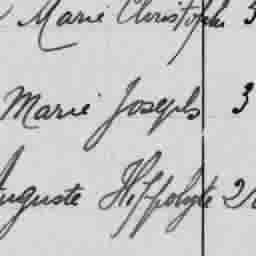 Marie Christophe 3
Marie Joseph 3
Auguste Hippolyte 2